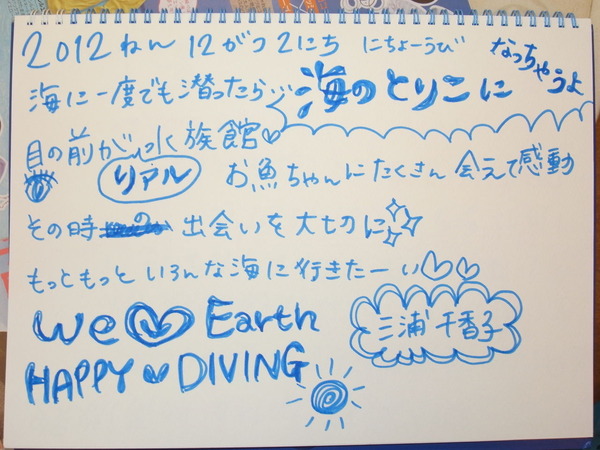 2012ねん 12がつ 2にち にちよーうび
海に一度でも潜ったら… 海のとりこに なっちゃうよ
目の前が 水族館
リアル お魚ちゃんにたくさん 会えて感動
その時 出会いを大切に
もっともっと いろんな海に行きたーい
We Earth
三浦 千香子
HAPPY DIVING